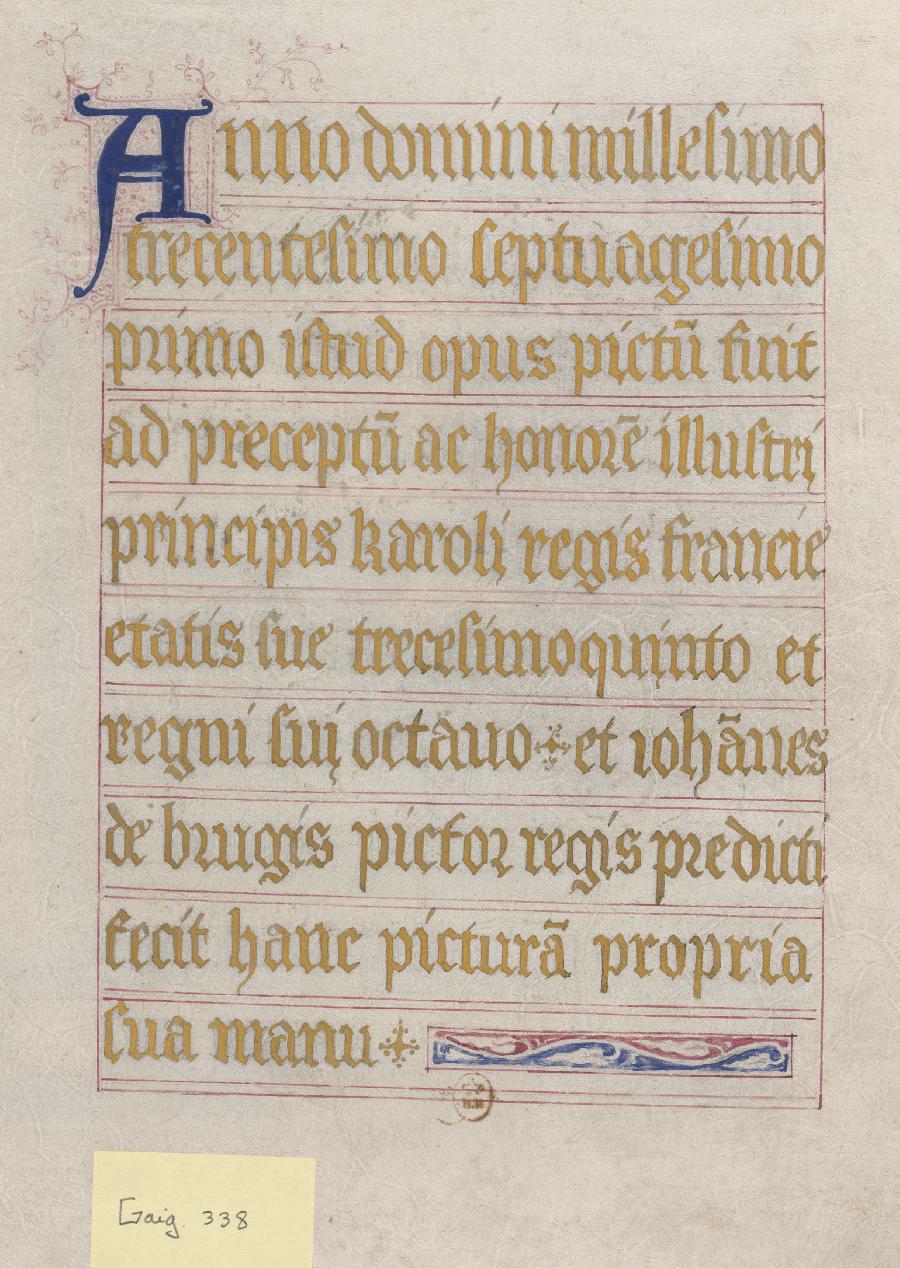 Anno domini millesimo
trecentesimo septuagesimo
primo istud opus pictū fuit
ad preceptū ac honorē illustri
principis karoli regis francie
etatis sue trecesimoquinto et
regni sui octauo et iohānes
de brugis pictor regis predicti
fecit hanc picturā propria
sua manu
Gaig. 338